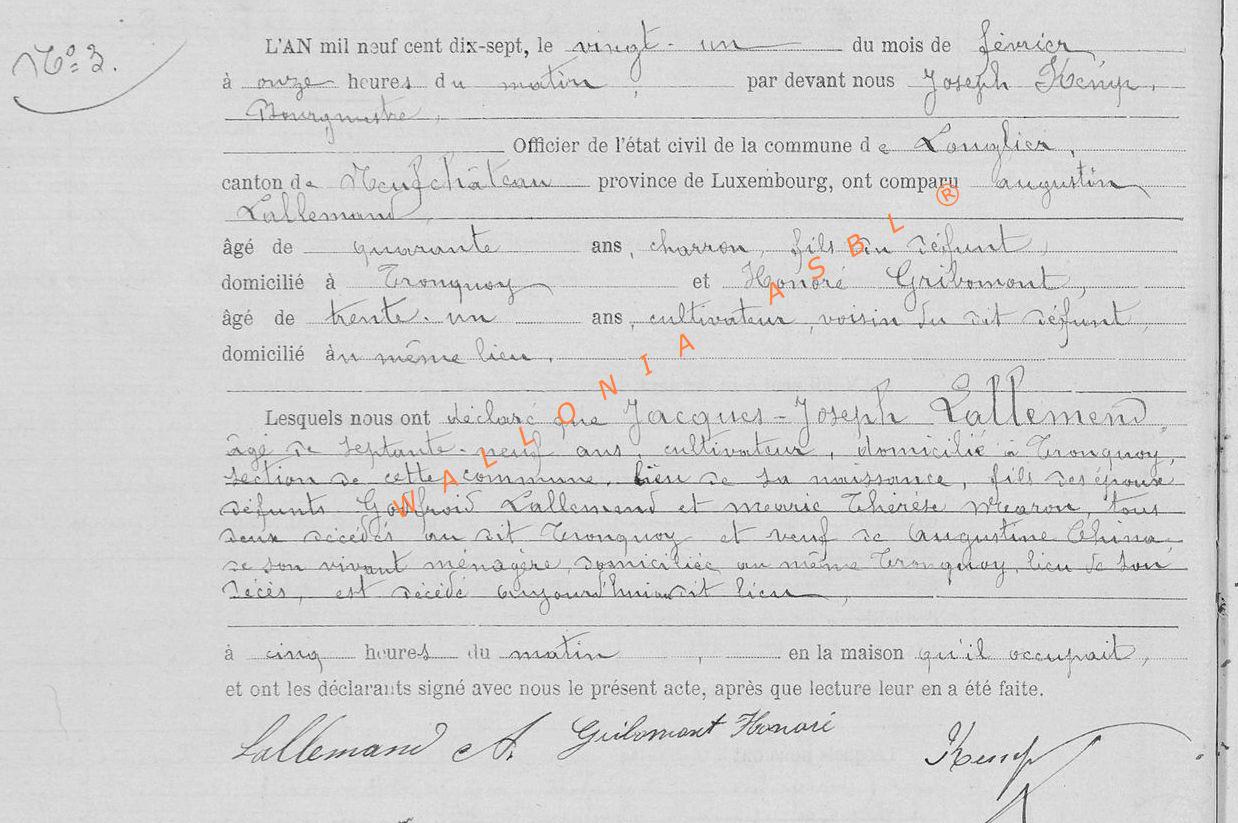 No: 3.
L'AN mil neuf cent dix-sept, le vingt-un du mois de février
à onze heures du matin, par devant nous Joseph Kemp,
Bourgmestre,
Officier de l'état civil de la commune de Longlier,
canton de Neufchâteau province de Luxembourg, ont comparu augustin
Lallemand,
âgé de quarante ans, charron, fils du défunt,
domicilié à Tronquoy et Honoré Gribomont,
âgé de trente-un ans, cultivateur, voisin du dit défunt,
domicilié au même lieu.
Lesquels nous ont déclaré que Jacques-Joseph Lallemend,
âgé de septante-neuf ans, cultivateur, domicilié à Tronquoy,
section de cette commune, lieu de sa naissance, fils des époux
défunts Godfroid Lallemend et marie Thérèse, tous
deux décédés au dit Tronquoy et veuf de Augustine China
de son vivant ménagère, domiciliée au même Tronquoy, lieu de son
décès, est décédé aujourd'hui au dit lieu,
à cinq heures du matin, en la maison qu'il occupait,
et ont les déclarants signé avec nous le présent acte, après que lecture leur en a été faite.
Lallemand A. Gribomont Honoré Kemp
WALLONIA ASBL ®